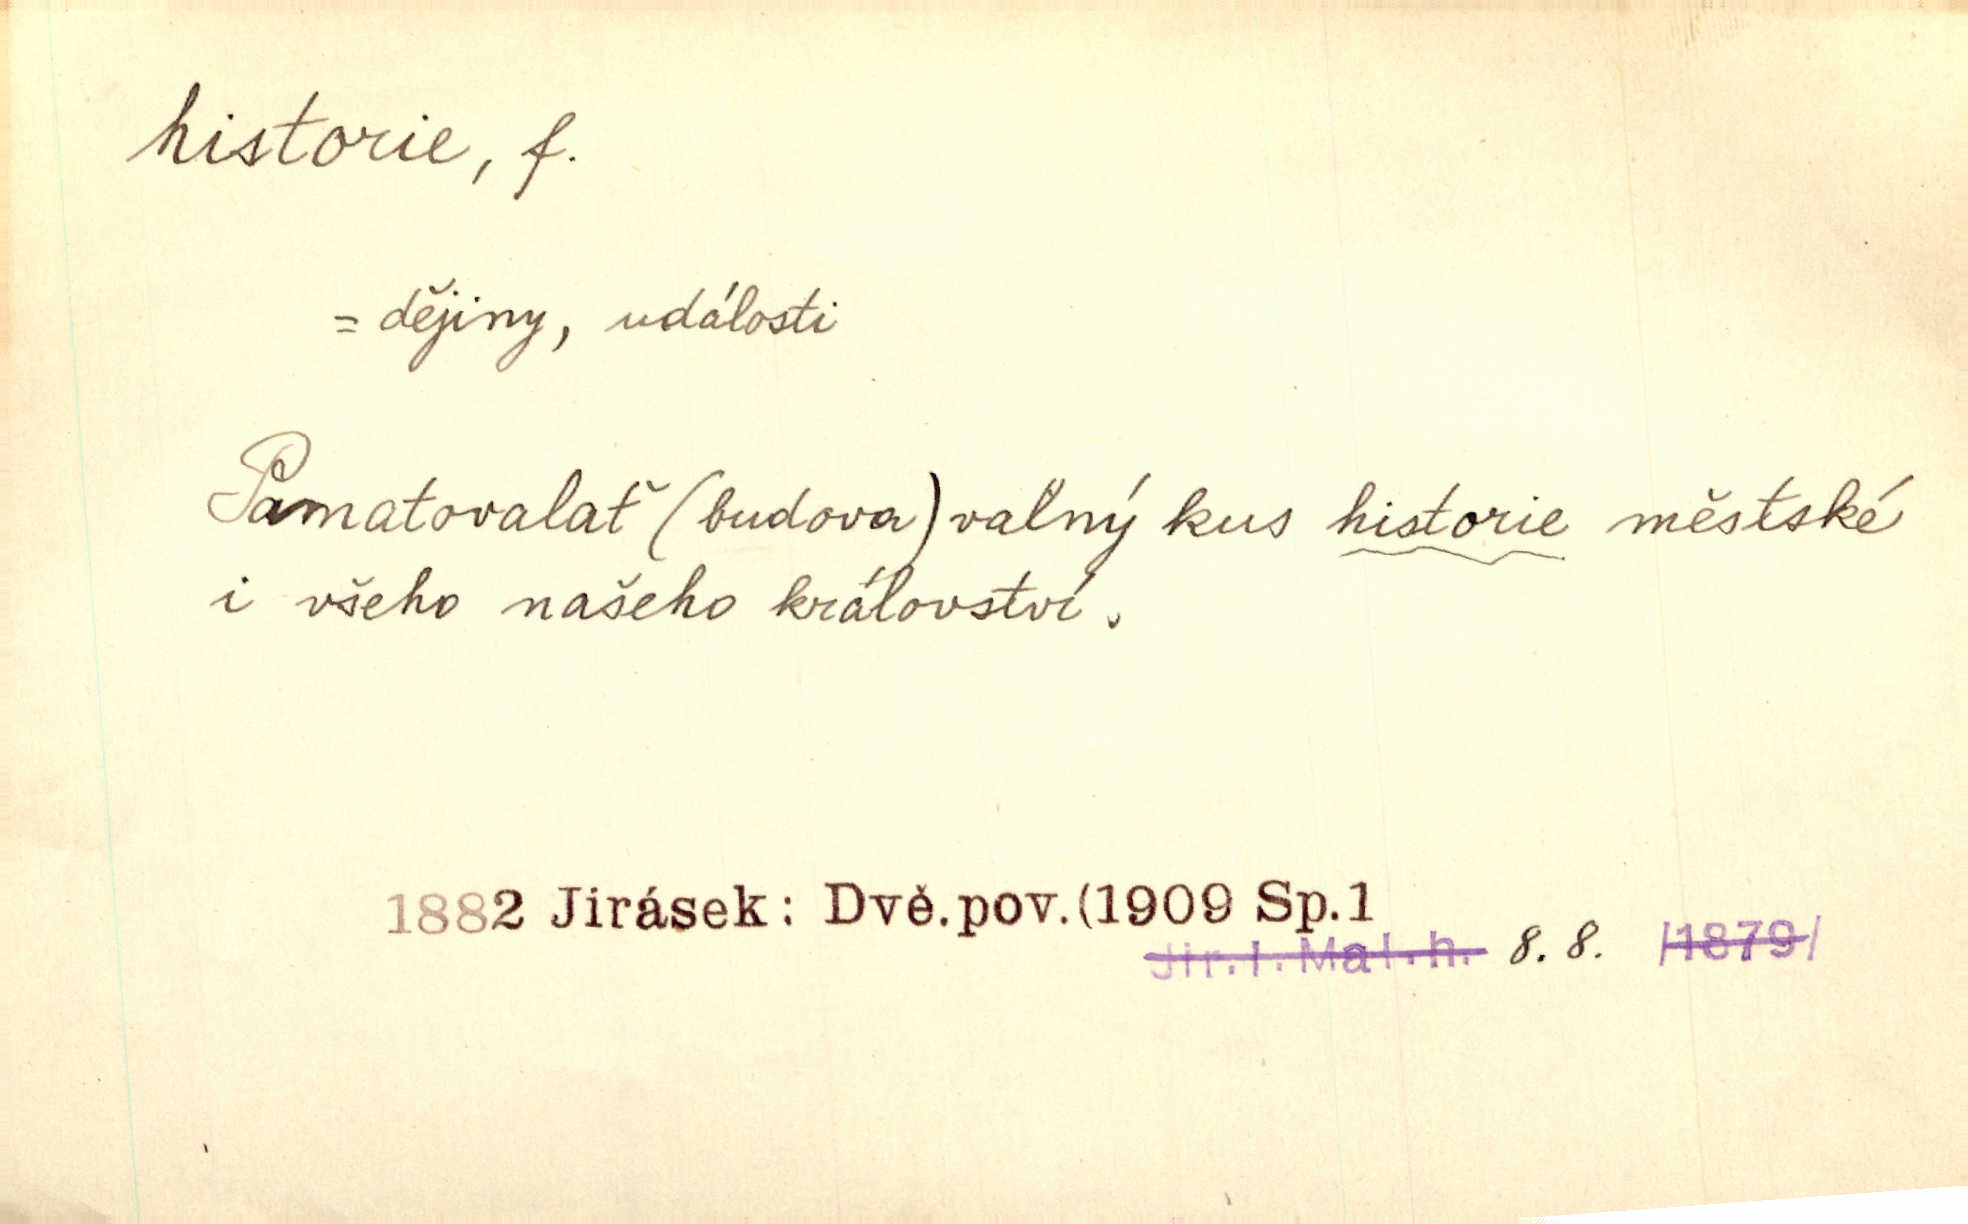 historie, f.
= dějiny, události
Pamatovalať (budova) valný kus historie městské
i všeho našeho království.
1882 Jirásek: Dvě.pov.(1909 Sp.1
Jir.I.Mal.h. 8. 8. /1879/